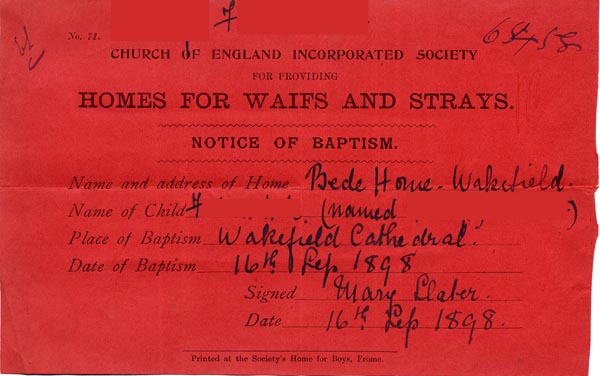 7
No. 71.
CHURCH OF ENGLAND INCORPORATED SOCIETY
FOR PROVIDING
HOMES FOR WAIFS AND STRAYS.
NOTICE OF BAPTISM.
Name and address of Home Bede Home - Wakefield.
Name of Child 7 (named )
Place of Baptism Wakefield Cathedral
Date of Baptism 16th Sep 1898
Signed Mary Slater.
Date 16th Sep 1898.
Printed at the Society's Home for Boys, Frome.